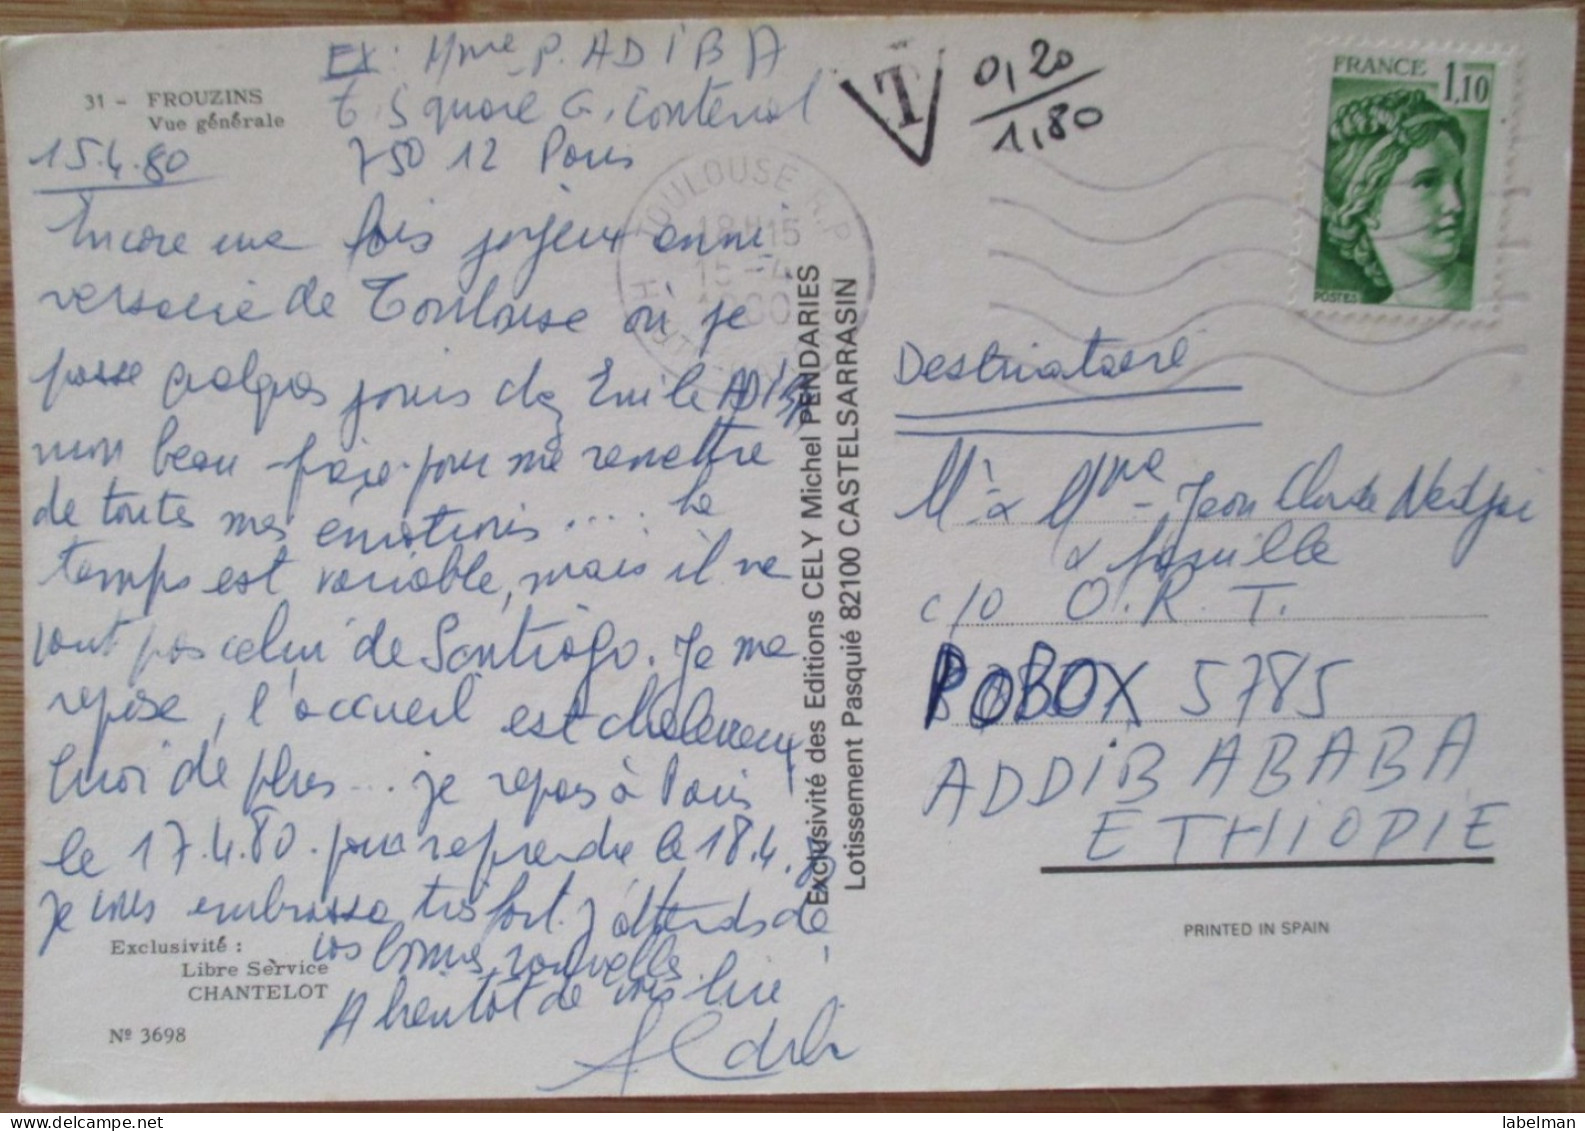 EX: Mme P. ADIBA
6, Square G. Contenot
75012 Paris
31 - FROUZINS
Vue générale
15.4.80
Encore une fois joyeux anni
versaire de Toulouse où je
passe quelques jours chez Emile ADIBA
mon beau-frère pour me remettre
de toutes mes émotions.... Le
temps est variable, mais il ne
vaut pas celui de Santiago. Je me
repose, l'accueil est chaleureux
quoi de plus... je repars à Paris
le 17.4.80. pour reprendre le 18.4.80
je vous embrasse très fort. J'attends de
vos bonnes nouvelles.
A bientôt de vous lire
Exclusivité :
Libre Service
CHANTELOT
Nº 3698
Exclusivité des Editions CELY Michel PENDARIES
Lotissement Pasquié 82100 CASTELSARRASIN
TOULOUSE R.P
18H15
15-4
1980
T
0,20
1,80
FRANCE 1,10
POSTES
Destinataire
Mr & Mme Jean Claude
& famille
c/o O.R.T.
POBOX 5785
ADDIB ABABA
ETHIOPIE
PRINTED IN SPAIN
labelman
www.delcampe.net